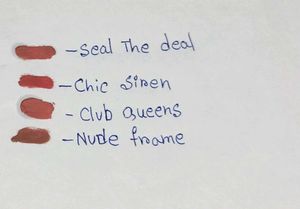 - Seal The deal
- Chic Siren
- Club Queens
- Nude frame